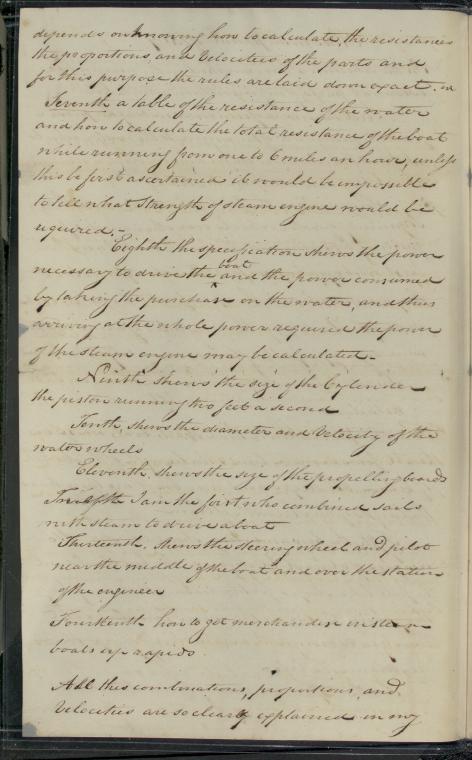 depends on knowing how to calculate, the resistances
the proportions, and Velocities of the parts and
for this purpose the rules are laid down exact. in
Seventh a table of the resistance of the water
and how to calculate the total resistance of the boat
while running from one to 6 miles an hour, unless
this be first ascertained it would be impossible
to tell what Strength of steam engine would be
required.-
Eighth the specification shews the power
boat
necessary to drive the ^ and the power consumed
by taking the purchase on the water, and thus
arriving at the whole power required the power
of the steam engine may be calculated-
Ninth shews the size of the Cylender
the piston running two feet a second
Tenth, shews the diameter and Velocity of the
water wheels
Eleventh, shews the size of the propelling boards
Twelfth I am the first who combined sails
with steam to drive a boat
Thirteenth, shews the steering wheel and pilot
near the middle of the boat and over the station
of the engineer
Fourteenth how to get merchandise in steam
boats up rapids.
All thes combinations, proportions, and
Velocities are so clearly explained in my